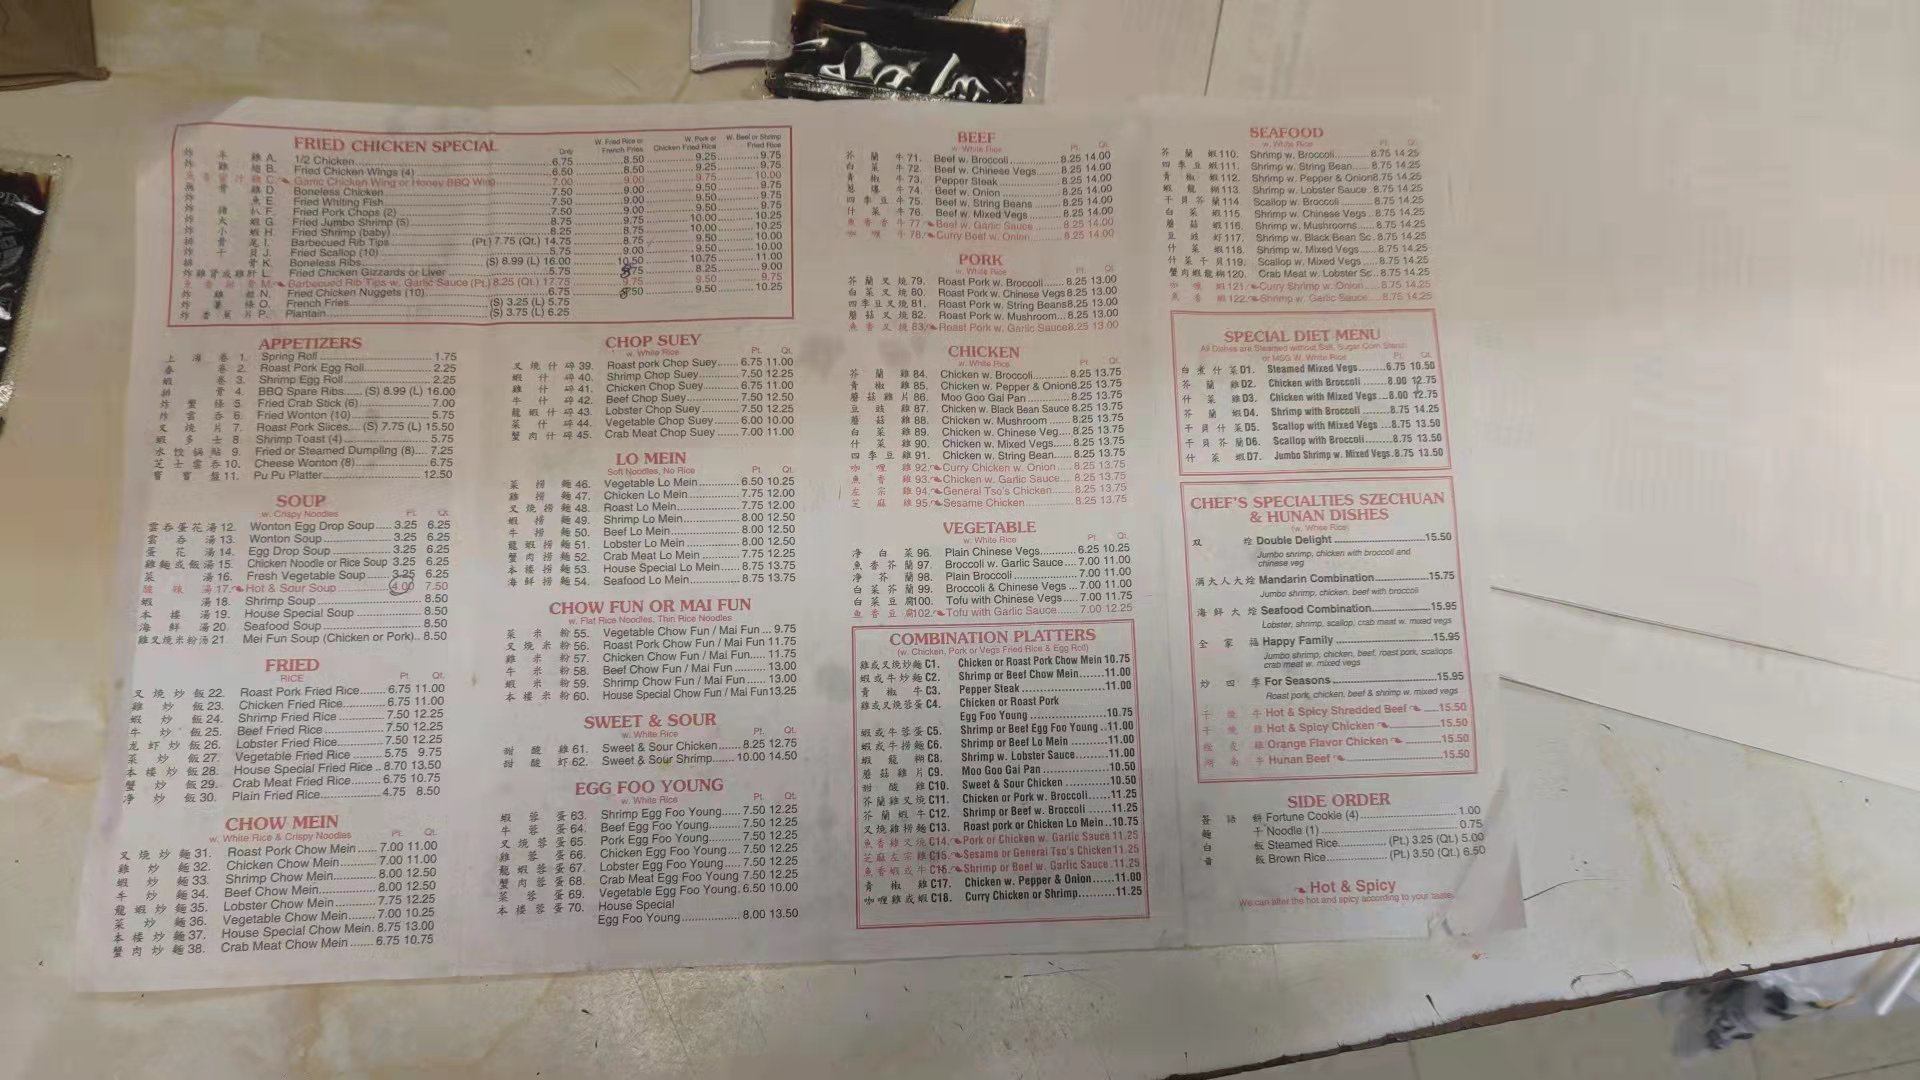 FRIED CHICKEN SPECIAL
Only
W. Fried Rice or French Fries
W. Pork or Chicken Fried Rice
W. Beef or Shrimp Fried Rice
A. 1/2 Chicken 6.75 8.50 9.25 9.75
B. Fried Chicken Wings (4) 6.50 8.50 9.25 9.75
C. Garlic Chicken Wing or Honey BBQ Wing 7.00 9.00 9.75 10.00
D. Boneless Chicken 7.50 9.00 9.50 9.75
E. Fried Whiting Fish 7.50
F. Fried Pork Chops (2) 7.50
G. Fried Jumbo Shrimp (5)
H. Fried Shrimp (baby) 8.25
I. Barbecued Rib Tips (Pt.) 7.75 (Qt.) 14.75
J. Fried Scallop (10) 5.75
K. Boneless Ribs (S) 8.99 (L) 16.00
L. Fried Chicken Gizzards or Liver 5.75
M. Barbecued Rib Tips w. Garlic Sauce (Pt.) 8.25 (Qt.) 17.75
N. Fried Chicken Nuggets (10) 6.75
O. French Fries (S) 3.25 (L) 5.75
P. Plantain (S) 3.75 (L) 6.25
APPETIZERS
上海卷 1. Spring Roll 1.75
春卷 2. Roast Pork Egg Roll 2.25
蝦卷 3. Shrimp Egg Roll 2.25
排骨 4. BBQ Spare Ribs (S) 8.99 (L) 16.00
炸蟹條 5. Fried Crab Stick (6) 7.00
炸雲吞 6. Fried Wonton (10) 5.75
叉燒片 7. Roast Pork Slices (S) 7.75 (L) 15.50
蝦多士 8. Shrimp Toast (4) 5.75
水餃鍋貼 9. Fried or Steamed Dumpling (8) 7.25
芝士雲吞 10. Cheese Wonton (8) 6.75
寶寶盤 11. Pu Pu Platter 12.50
SOUP
w. Crispy Noodles
Pt. Qt.
雲吞蛋花湯 12. Wonton Egg Drop Soup 3.25 6.25
雲吞湯 13. Wonton Soup 3.25 6.25
蛋花湯 14. Egg Drop Soup 3.25 6.25
雞麵或飯湯 15. Chicken Noodle or Rice Soup 3.25 6.25
菜湯 16. Fresh Vegetable Soup 3.25 6.25
酸辣湯 17. Hot & Sour Soup 4.00 7.50
蝦湯 18. Shrimp Soup 8.50
本樓湯 19. House Special Soup 8.50
海鮮湯 20. Seafood Soup 8.50
雞叉燒米粉汤 21. Mei Fun Soup (Chicken or Pork) 8.50
FRIED
RICE
Pt. Qt.
叉燒炒飯 22. Roast Pork Fried Rice 6.75 11.00
雞炒飯 23. Chicken Fried Rice 6.75 11.00
蝦炒飯 24. Shrimp Fried Rice 7.50 12.25
牛炒飯 25. Beef Fried Rice 7.50 12.25
龙虾炒飯 26. Lobster Fried Rice 7.50 12.25
菜炒飯 27. Vegetable Fried Rice 5.75 9.75
本樓炒飯 28. House Special Fried Rice 8.70 13.50
蟹炒飯 29. Crab Meat Fried Rice 6.75 10.75
净炒飯 30. Plain Fried Rice 4.75 8.50
CHOW MEIN
w. White Rice & Crispy Noodles
Pt. Qt.
叉燒炒麵 31. Roast Pork Chow Mein 7.00 11.00
雞炒麵 32. Chicken Chow Mein 7.00 11.00
蝦炒麵 33. Shrimp Chow Mein 8.00 12.50
牛炒麵 34. Beef Chow Mein 8.00 12.50
龍蝦炒麵 35. Lobster Chow Mein 7.75 12.25
菜炒麵 36. Vegetable Chow Mein 7.00 10.25
本樓炒麵 37. House Special Chow Mein 8.75 13.00
蟹肉炒麵 38. Crab Meat Chow Mein 6.75 10.75
CHOP SUEY
w. White Rice
Pt. Qt.
叉燒什碎 39. Roast pork Chop Suey 6.75 11.00
蝦什碎 40. Shrimp Chop Suey 7.50 12.25
雞什碎 41. Chicken Chop Suey 6.75 11.00
牛什碎 42. Beef Chop Suey 7.50 12.25
龍蝦什碎 43. Lobster Chop Suey 7.50 12.25
菜什碎 44. Vegetable Chop Suey 6.00 10.00
蟹肉什碎 45. Crab Meat Chop Suey 7.00 11.00
LO MEIN
Soft Noodles, No Rice
Pt. Qt.
菜撈麵 46. Vegetable Lo Mein 6.50 10.25
雞撈麵 47. Chicken Lo Mein 7.75 12.00
叉燒撈麵 48. Roast Lo Mein 7.75 12.00
蝦撈麵 49. Shrimp Lo Mein 8.00 12.50
牛撈麵 50. Beef Lo Mein 8.00 12.50
龍蝦撈麵 51. Lobster Lo Mein 8.00 12.50
蟹肉撈麵 52. Crab Meat Lo Mein 7.75 12.25
本樓撈麵 53. House Special Lo Mein 8.75 13.75
海鮮撈麵 54. Seafood Lo Mein 8.75 13.75
CHOW FUN OR MAI FUN
w. Flat Rice Noodles, Thin Rice Noodles
菜米粉 55. Vegetable Chow Fun / Mai Fun 9.75
叉燒米粉 56. Roast Pork Chow Fun / Mai Fun 11.75
雞米粉 57. Chicken Chow Fun / Mai Fun 11.75
牛米粉 58. Beef Chow Fun / Mai Fun 13.00
蝦米粉 59. Shrimp Chow Fun / Mai Fun 13.00
本樓米粉 60. House Special Chow Fun / Mai Fun 13.25
SWEET & SOUR
w. White Rice
Pt. Qt.
甜酸雞 61. Sweet & Sour Chicken 8.25 12.75
甜酸虾 62. Sweet & Sour Shrimp 10.00 14.50
EGG FOO YOUNG
w. White Rice
Pt. Qt.
蝦蓉蛋 63. Shrimp Egg Foo Young 7.50 12.25
牛蓉蛋 64. Beef Egg Foo Young 7.50 12.25
叉燒蓉蛋 65. Pork Egg Foo Young 7.50 12.25
雞蓉蛋 66. Chicken Egg Foo Young 7.50 12.25
龍蝦蓉蛋 67. Lobster Egg Foo Young 7.50 12.25
蟹肉蓉蛋 68. Crab Meat Egg Foo Young 7.50 12.25
菜蓉蛋 69. Vegetable Egg Foo Young 6.50 10.00
本樓蓉蛋 70. House Special
Egg Foo Young 8.00 13.50
BEEF
w. White Rice
Pt. Qt.
芥蘭牛 71. Beef w. Broccoli 8.25 14.00
白菜牛 72. Beef w. Chinese Vegs 8.25 14.00
青椒牛 73. Pepper Steak 8.25 14.00
蔥爆牛 74. Beef w. Onion 8.25 14.00
四季豆牛 75. Beef w. String Beans 8.25 14.00
什菜牛 76. Beef w. Mixed Vegs 8.25 14.00
魚香牛 77. Beef w. Garlic Sauce 8.25 14.00
咖喱牛 78. Curry Beef w. Onion 8.25 14.00
PORK
w. White Rice
Pt. Qt.
芥蘭叉燒 79. Roast Pork w. Broccoli 8.25 13.00
白菜叉燒 80. Roast Pork w. Chinese Vegs 8.25 13.00
四季豆叉燒 81. Roast Pork w. String Beans 8.25 13.00
蘑菇叉燒 82. Roast Pork w. Mushroom 8.25 13.00
魚香叉燒 83. Roast Pork w. Garlic Sauce 8.25 13.00
CHICKEN
w. White Rice
Pt. Qt.
芥蘭雞 84. Chicken w. Broccoli 8.25 13.75
青椒雞 85. Chicken w. Pepper & Onion 8.25 13.75
蘑菇雞片 86. Moo Goo Gai Pan 8.25 13.75
豆豉雞 87. Chicken w. Black Bean Sauce 8.25 13.75
蘑菇雞 88. Chicken w. Mushroom 8.25 13.75
白菜雞 89. Chicken w. Chinese Veg 8.25 13.75
什菜雞 90. Chicken w. Mixed Vegs 8.25 13.75
四季豆雞 91. Chicken w. String Bean 8.25 13.75
咖喱雞 92. Curry Chicken w. Onion 8.25 13.75
魚香雞 93. Chicken w. Garlic Sauce 8.25 13.75
左宗雞 94. General Tso's Chicken 8.25 13.75
芝麻雞 95. Sesame Chicken 8.25 13.75
VEGETABLE
w. White Rice
Pt. Qt.
净白菜 96. Plain Chinese Vegs 6.25 10.25
魚香芥蘭 97. Broccoli w. Garlic Sauce 7.00 11.00
净芥蘭 98. Plain Broccoli 7.00 11.00
白菜芥蘭 99. Broccoli & Chinese Vegs 7.00 11.00
白菜豆腐 100. Tofu with Chinese Vegs 7.00 11.75
魚香豆腐 102. Tofu with Garlic Sauce 7.00 12.25
COMBINATION PLATTERS
(w. Chicken, Pork or Vegs Fried Rice & Egg Roll)
雞或叉燒炒麵 C1. Chicken or Roast Pork Chow Mein 10.75
蝦或牛炒麵 C2. Shrimp or Beef Chow Mein 11.00
青椒牛 C3. Pepper Steak 11.00
雞或叉燒蓉蛋 C4. Chicken or Roast Pork
Egg Foo Young 10.75
蝦或牛蓉蛋 C5. Shrimp or Beef Egg Foo Young 11.00
蝦或牛撈麵 C6. Shrimp or Beef Lo Mein 11.00
蝦龍糊 C8. Shrimp w. Lobster Sauce 11.00
蘑菇雞片 C9. Moo Goo Gai Pan 10.50
甜酸雞 C10. Sweet & Sour Chicken 10.50
芥蘭雞叉燒 C11. Chicken or Pork w. Broccoli 11.25
芥蘭蝦牛 C12. Shrimp or Beef w. Broccoli 11.25
叉燒雞撈麵 C13. Roast pork or Chicken Lo Mein 10.75
魚香雞叉燒 C14. Pork or Chicken w. Garlic Sauce 11.25
芝麻左宗雞 C15. Sesame or General Tso's Chicken 11.25
魚香蝦或牛 C16. Shrimp or Beef w. Garlic Sauce 11.25
青椒雞 C17. Chicken w. Pepper & Onion 11.00
咖喱雞或蝦 C18. Curry Chicken or Shrimp 11.25
SEAFOOD
w. White Rice
Pt. Qt.
芥蘭蝦 110. Shrimp w. Broccoli 8.75 14.25
四季豆蝦 111. Shrimp w. String Bean 8.75 14.25
青椒蝦 112. Shrimp w. Pepper & Onion 8.75 14.25
蝦龍糊 113. Shrimp w. Lobster Sauce 8.75 14.25
干貝芥蘭 114. Scallop w. Broccoli 8.75 14.25
白菜蝦 115. Shrimp w. Chinese Vegs 8.75 14.25
蘑菇蝦 116. Shrimp w. Mushrooms 8.75 14.25
豆豉虾 117. Shrimp w. Black Bean Sc 8.75 14.25
什菜蝦 118. Shrimp w. Mixed Vegs 8.75 14.25
什菜干貝 119. Scallop w. Mixed Vegs 8.75 14.25
蟹肉蝦龍糊 120. Crab Meat w. Lobster Sc 8.75 14.25
咖喱蝦 121. Curry Shrimp w. Onion 8.75 14.25
魚香蝦 122. Shrimp w. Garlic Sauce 8.75 14.25
SPECIAL DIET MENU
All Dishes are Steamed without Salt, Sugar Corn Starch
or MSG W. White Rice
Pt. Qt.
白煮什菜 D1. Steamed Mixed Vegs 6.75 10.50
芥蘭雞 D2. Chicken with Broccoli 8.00 12.75
什菜雞 D3. Chicken with Mixed Vegs 8.00 12.75
芥蘭蝦 D4. Shrimp with Broccoli 8.75 14.25
干貝什菜 D5. Scallop with Mixed Vegs 8.75 13.50
干貝芥蘭 D6. Scallop with Broccoli 8.75 13.50
什菜蝦 D7. Jumbo Shrimp w. Mixed Vegs 8.75 13.50
CHEF'S SPECIALTIES SZECHUAN
& HUNAN DISHES
(w. White Rice)
双烩 Double Delight 15.50
Jumbo shrimp, chicken with broccoli and
chinese veg
满大人大烩 Mandarin Combination 15.75
Jumbo shrimp, chicken, beef with broccoli
海鮮大烩 Seafood Combination 15.95
Lobster, shrimp, scallop, crab meat w. mixed vegs
全家福 Happy Family 15.95
Jumbo shrimp, chicken, beef, roast pork, scallops
crab meat w. mixed vegs
炒四季 For Seasons 15.95
Roast pork, chicken, beef & shrimp w. mixed vegs
干燒牛 Hot & Spicy Shredded Beef 15.50
干燒雞 Hot & Spicy Chicken 15.50
Orange Flavor Chicken 15.50
湖南牛 Hunan Beef 15.50
SIDE ORDER
簽語餅 Fortune Cookie (4) 1.00
麵干 Noodle (1) 0.75
白飯 Steamed Rice (Pt.) 3.25 (Qt.) 5.00
Brown Rice (Pt.) 3.50 (Qt.) 6.50
Hot & Spicy
We can alter the hot and spicy according to your taste.